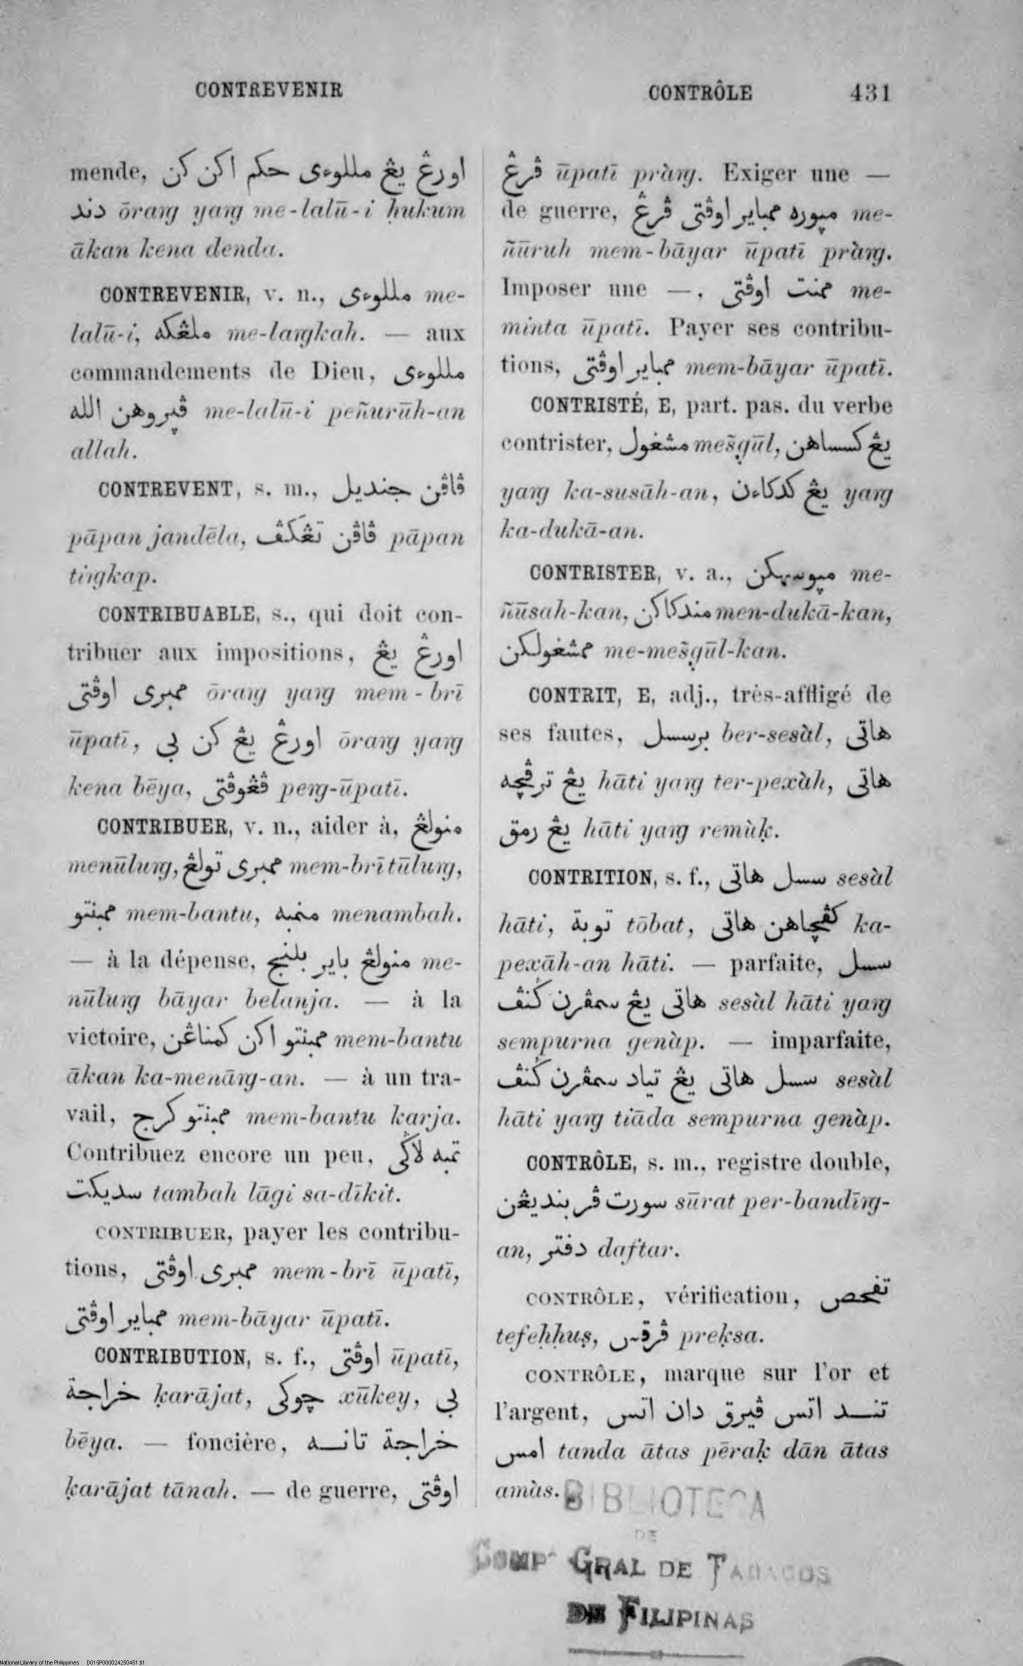 CONTREVENIR
CONTRÔLE 431
mende, اورڠ يڠ مللوءى حكم اكن كن
دند ōrang yang me-lalū-i ḥukum
ākan kena denda.
CONTREVENIR, v. n., مللوءى me-
lalū-i, ملڠكه me-langkah. — aux
commandements de Dieu, مللوءى
ڤڽروهن الله me-lalū-i peñurūh-an
allah.
CONTREVENT, s. m., ڤاڤن جنديل
pāpan jandēla, ڤاڤن تڠكڤ pāpan
tingkap.
CONTRIBUABLE, s., qui doit con-
tribuer aux impositions, اورڠ يڠ
ممبرى اوڤتى ōrang yang mem-brī
ūpatī, اورڠ يڠ كن بي ōrang yang
kena bēya, ڤڠوڤتى peng-ūpatī.
CONTRIBUER, v. n., aider à, منولڠ
menūlung, ممبرى تولڠ mem-brī tūlung,
ممبنتو mem-bantu, منمبه menambah.
— à la dépense, منولڠ باير بلنج me-
nūlung bāyar belanja. — à la
victoire, ممبنتو اكن كمناڠن mem-bantu
ākan ka-menāng-an. — à un tra-
vail, ممبنتو كرج mem-bantu karja.
Contribuez encore un peu, تمبه لاڬى
سديكت tambah lāgi sa-dīkit.
CONTRIBUER, payer les contribu-
tions, ممبرى اوڤتى mem-brī ūpatī,
ممباير اوڤتى mem-bāyar ūpatī.
CONTRIBUTION, s. f., اوڤتى ūpatī,
خراجة ḳarājat, چوكى xūkey, بي
bēya. — foncière, خراجة تانه
ḳarājat tānah. — de guerre, اوڤتى
ڤرڠ ūpatī pràng. Exiger une —
de guerre, مڽوره ممباير اوڤتى ڤرڠ me-
ñūruh mem-bāyar ūpatī pràng.
Imposer une —, ممنت اوڤتى me-
minta ūpatī. Payer ses contribu-
tions, ممباير اوڤتى mem-bāyar ūpatī.
CONTRISTÉ, E, part. pas. du verbe
contrister, مشغول mešgūl, يڠ كسساهن
yang ka-susāh-an, يڠ كدكاءن yang
ka-dukā-an.
CONTRISTER, v. a., مڽوسهكن me-
ñūsah-kan, مندكاكن men-dukā-kan,
ممشغولكن me-mešgūl-kan.
CONTRIT, E, adj., très-affligé de
ses fautes, برسسل ber-sesàl, هاتى
يڠ ترڤچه hāti yang ter-pexàh, هاتى
يڠ رمق hāti yang remùḳ.
CONTRITION, s. f., سسل هاتى sesàl
hāti, توبة tōbat, كڤچاهن هاتى ka-
pexāh-an hāti. — parfaite, سسل
هاتى يڠ سمڤرن ڬنڤ sesàl hāti yang
sempurna genàp. — imparfaite,
سسل هاتى يڠ تياد سمڤرن ڬنڤ sesàl
hāti yang tiāda sempurna genàp.
CONTRÔLE, s. m., registre double,
سورت ڤربنديڠن sūrat per-bandīng-
an, دفتر daftar.
CONTRÔLE, vérification, تفحص
tefeḥḥuṣ, ڤرقس preḳsa.
CONTRÔLE, marque sur l'or et
l'argent, تند اتس ڤيرق دان اتس
امس tanda ātas pēraḳ dān ātas
amùs.
BIBLIOTECA
DE
COMPª GRAL DE TABACOS
DE FILIPINAS
National Library of the Philippines